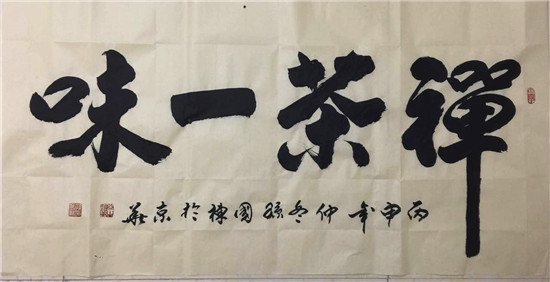 禪茶一味
丙申年仲冬孫國棟於京華